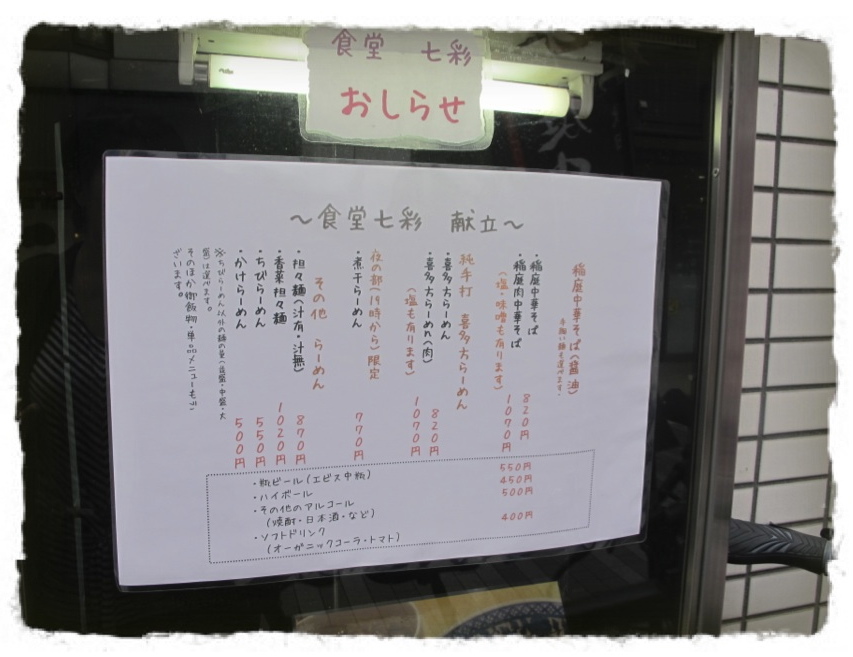 食堂 七彩
おしらせ
～食堂七彩 献立～
稲庭中華そば(醤油)
手揉い麺も選べます。
・稲庭中華そば 820円
・稲庭肉中華そば 1070円
(塩・味噌も有ります)
純手打 喜多方らーめん
・喜多方らーめん 820円
・喜多方らーめん(肉) 1070円
(塩も有ります)
夜の部(19時から)限定
・煮干らーめん 770円
その他 らーめん
・担々麺(汁有・汁無) 870円
・香菜担々麺 1020円
・ちびらーめん 550円
・かけらーめん 500円
※ちびらーめん以外の麺の量(並盛・中盛・大
盛)は選べます。
そのほか御飯物・単品メニューもご
ざいます。
・瓶ビール(エビス中瓶) 550円
・ハイボール 450円
・その他のアルコール 500円
(焼酎・日本酒・など)
・ソフトドリンク 400円
(オーガニックコーラ・トマト)